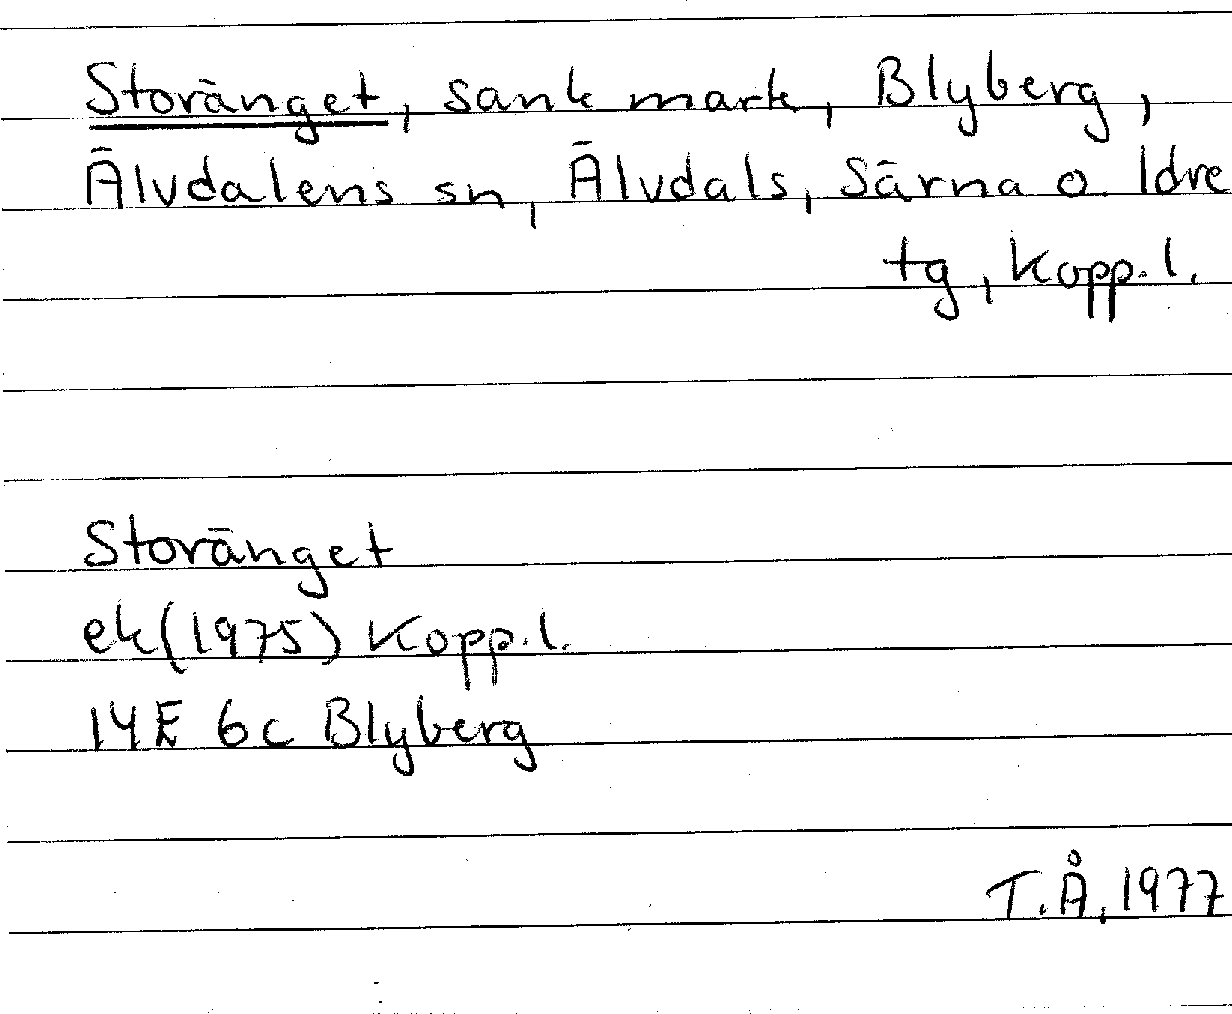 Storänget, sank mark, Blyberg,
Älvdalens sn, Älvdals, Särna o. Idre
tg, Kopp.l.
Storänget
ek(1975) Kopp.l.
14E 6c Blyberg
T.Å. 1977